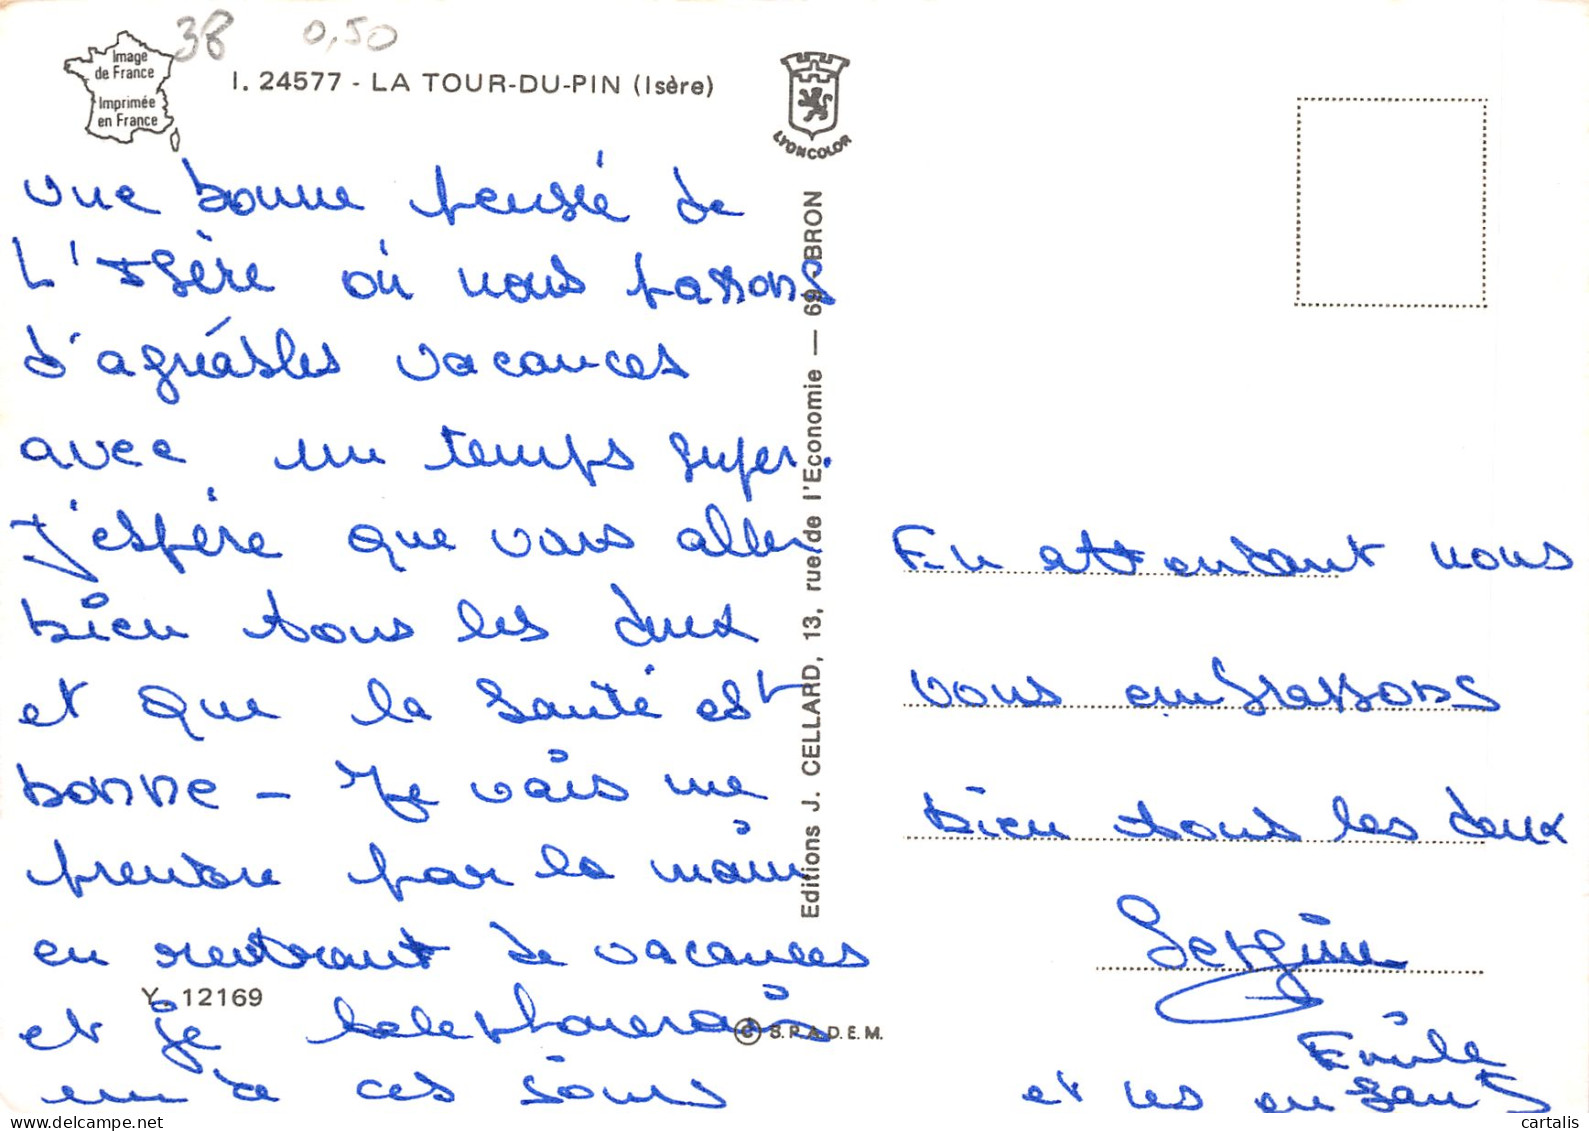 38 0,50
Image
de France
Imprimée
en France
I. 24577 - LA TOUR-DU-PIN (Isère)
LYONCOLOR
une bonne pensée de
L'Isère où nous passons
d'agréables vacances
avec un temps super.
J'espère que vous allez
bien tous les deux
et que la santé est
bonne - Je vais me
prendre par la main
en rentrant de vacances
et je telephonerais
un de ces jours
Y. 12169
© S.P.A.D.E.M.
Editions J. CELLARD, 13, rue de l'Economie — 69 - BRON
En attendant nous
vous embrassons
bien tous les deux
Sergine
Emile
et les enfants
cartalis